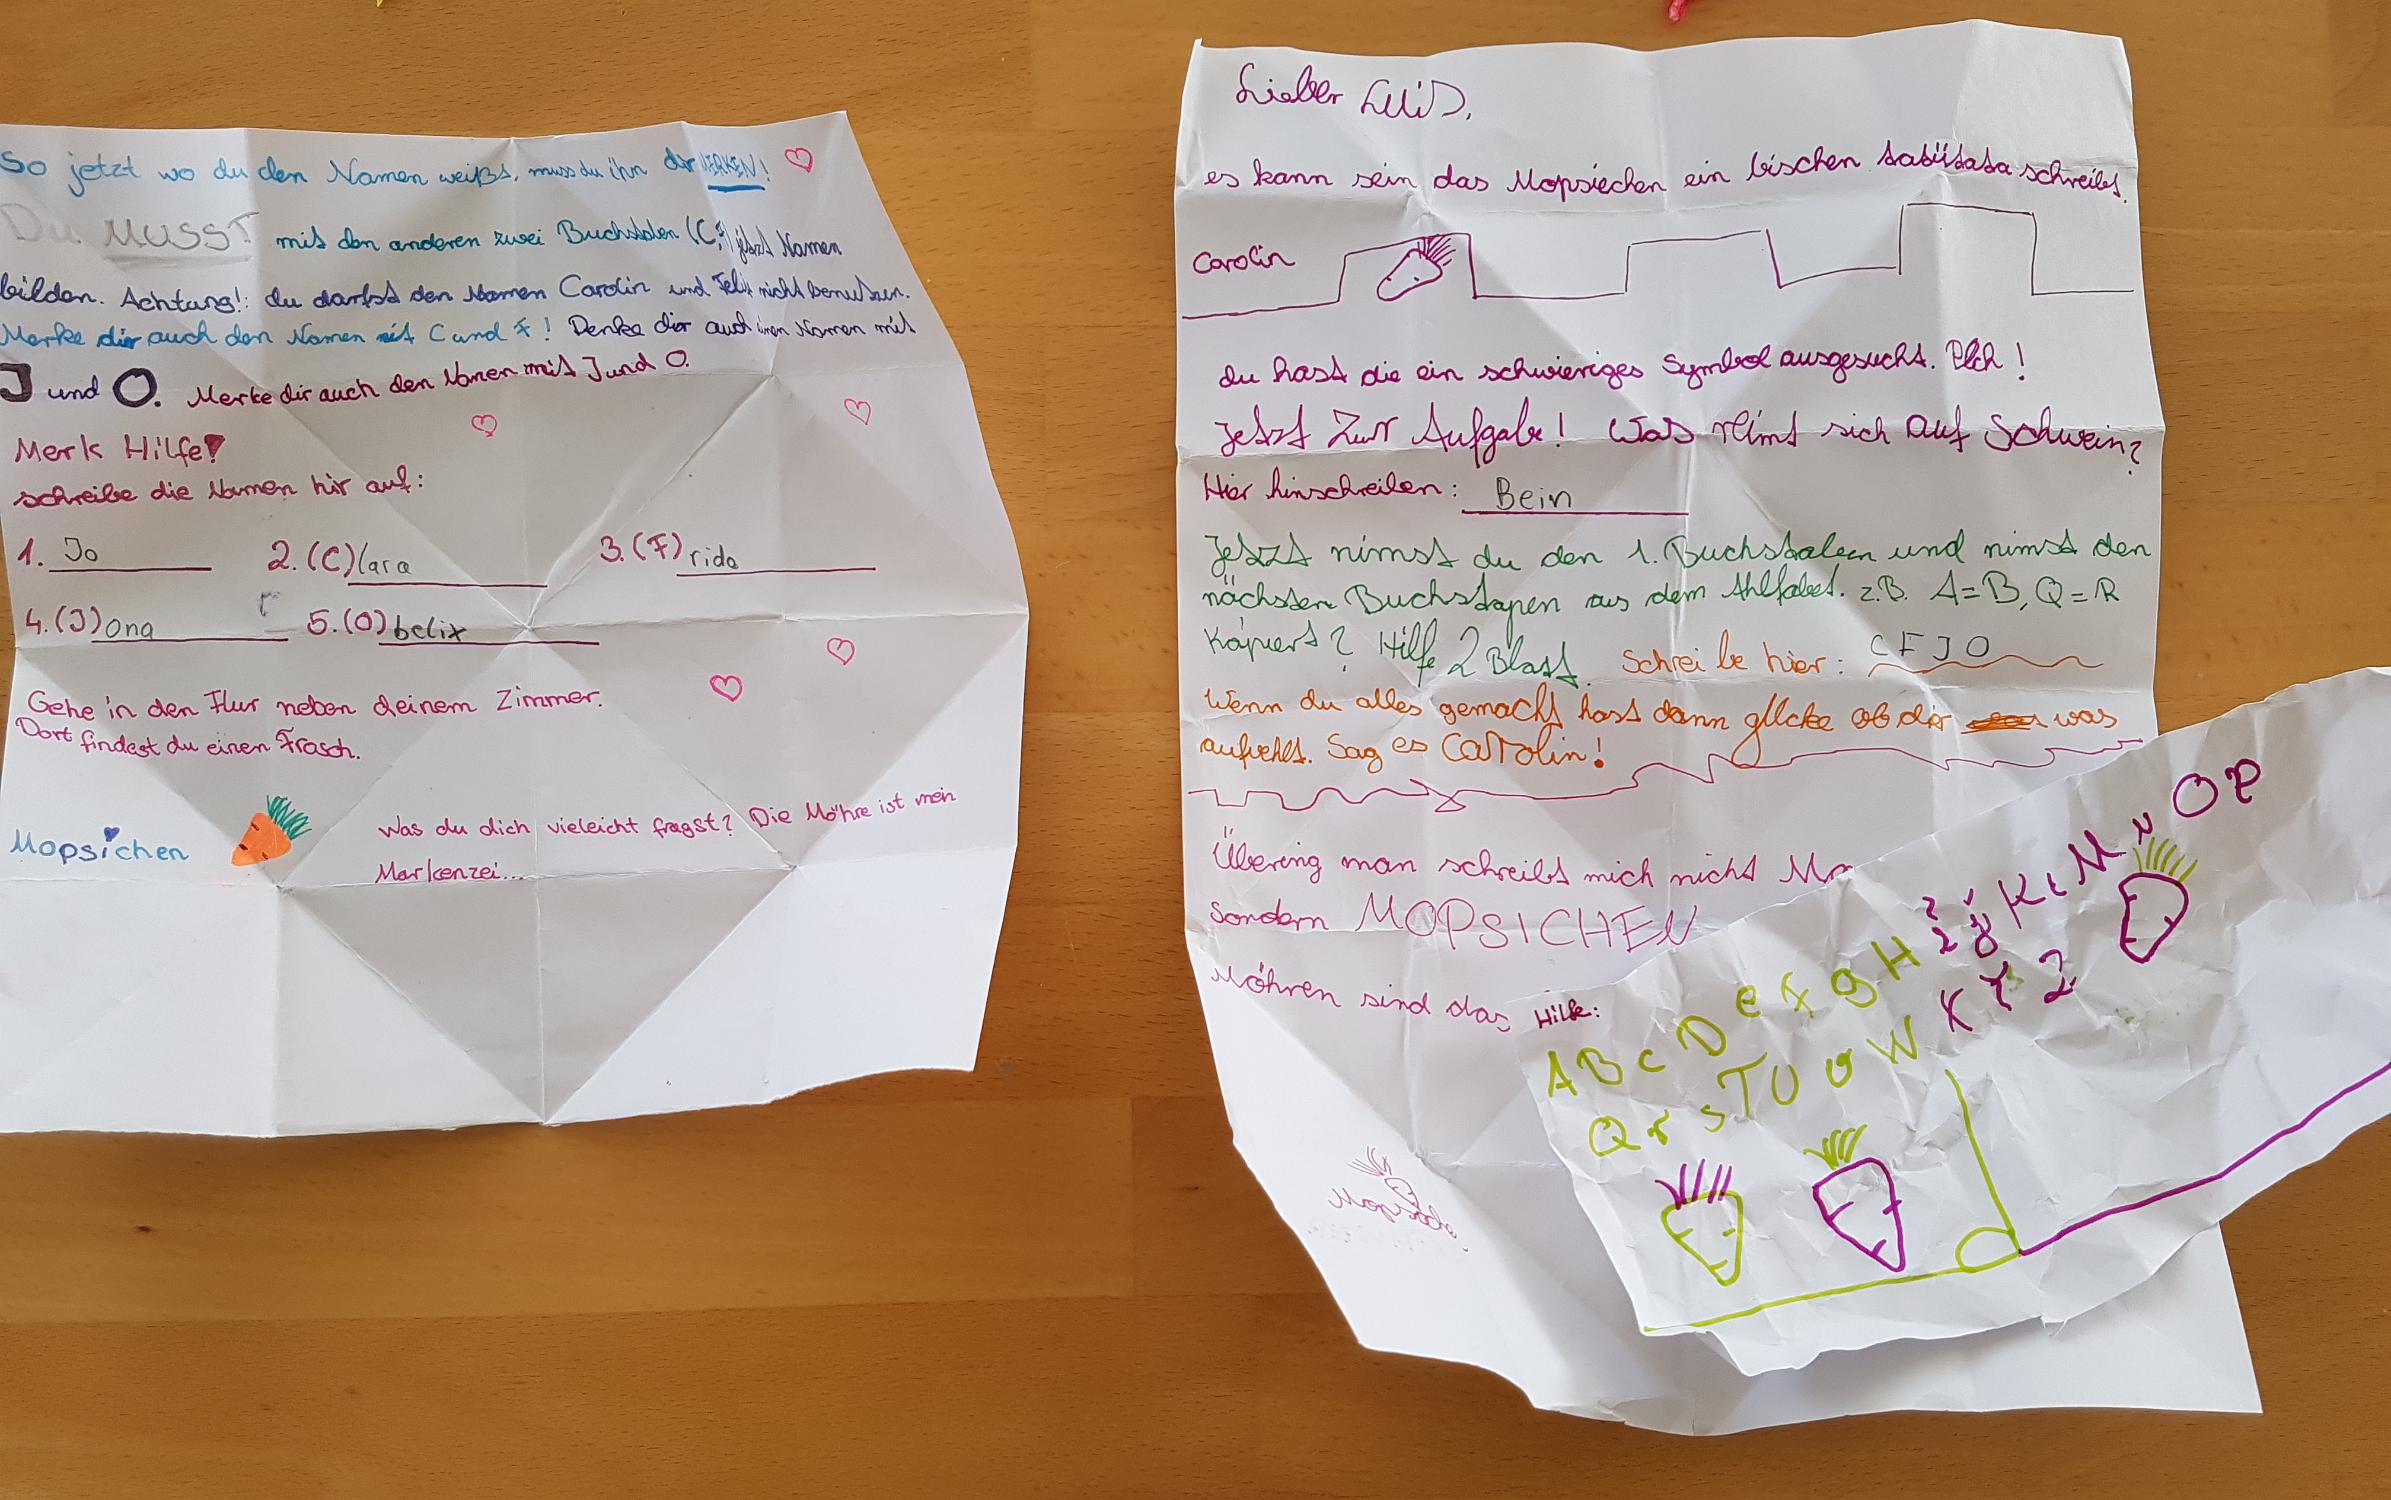 So jetzt wo du den Namen weißt, muss du ihn dir MERKEN!
Du MUSST mit den anderen zwei Buchstaben (C,F) jetzt Namen
bilden. Achtung!: du darfst den Namen Carolin und Felix nicht benutzen.
Merke dir auch den Namen mit C und F! Denke dir auch einen Namen mit
J und O. Merke dir auch den Namen mit J und O.
Merk Hilfe!
schreibe die Namen hir auf:
1. Jo 2. (C)lara 3. (F)rida
4. (J)ona 5. (O)belix
Gehe in den Flur neben deinem Zimmer.
Dort findest du einen Frosch.
Mopsichen
Was du dich vieleicht fragst? Die Möhre ist mein
Markenzei...
Lieber LUiS,
es kann sein das Mopsiechen ein bischen schreibt.
Carolin
du hast die ein schwieriges Symbol ausgesucht. Elch!
Jetzt Zur Aufgabe! Was reimt sich auf Schwein?
Hier hinschreiben: Bein
Jetzt nimst du den 1. Buchstaben und nimst den
nächsten Buchstapen aus dem Ahlfabet. z.B. A=B, Q=R
Kapiert? Hilfe 2 Blatt. Schreibe hier: C F J O
Wenn du alles gemacht hast dann gucke ob dir was
aufvehlt. Sag es Carolin!
Übering man schreibt mich nicht
sondern MOPSICHEN
Möhren sind das
Hilfe:
A B c D e f g H i j K L M N O P
Q r s T U v W X Y Z